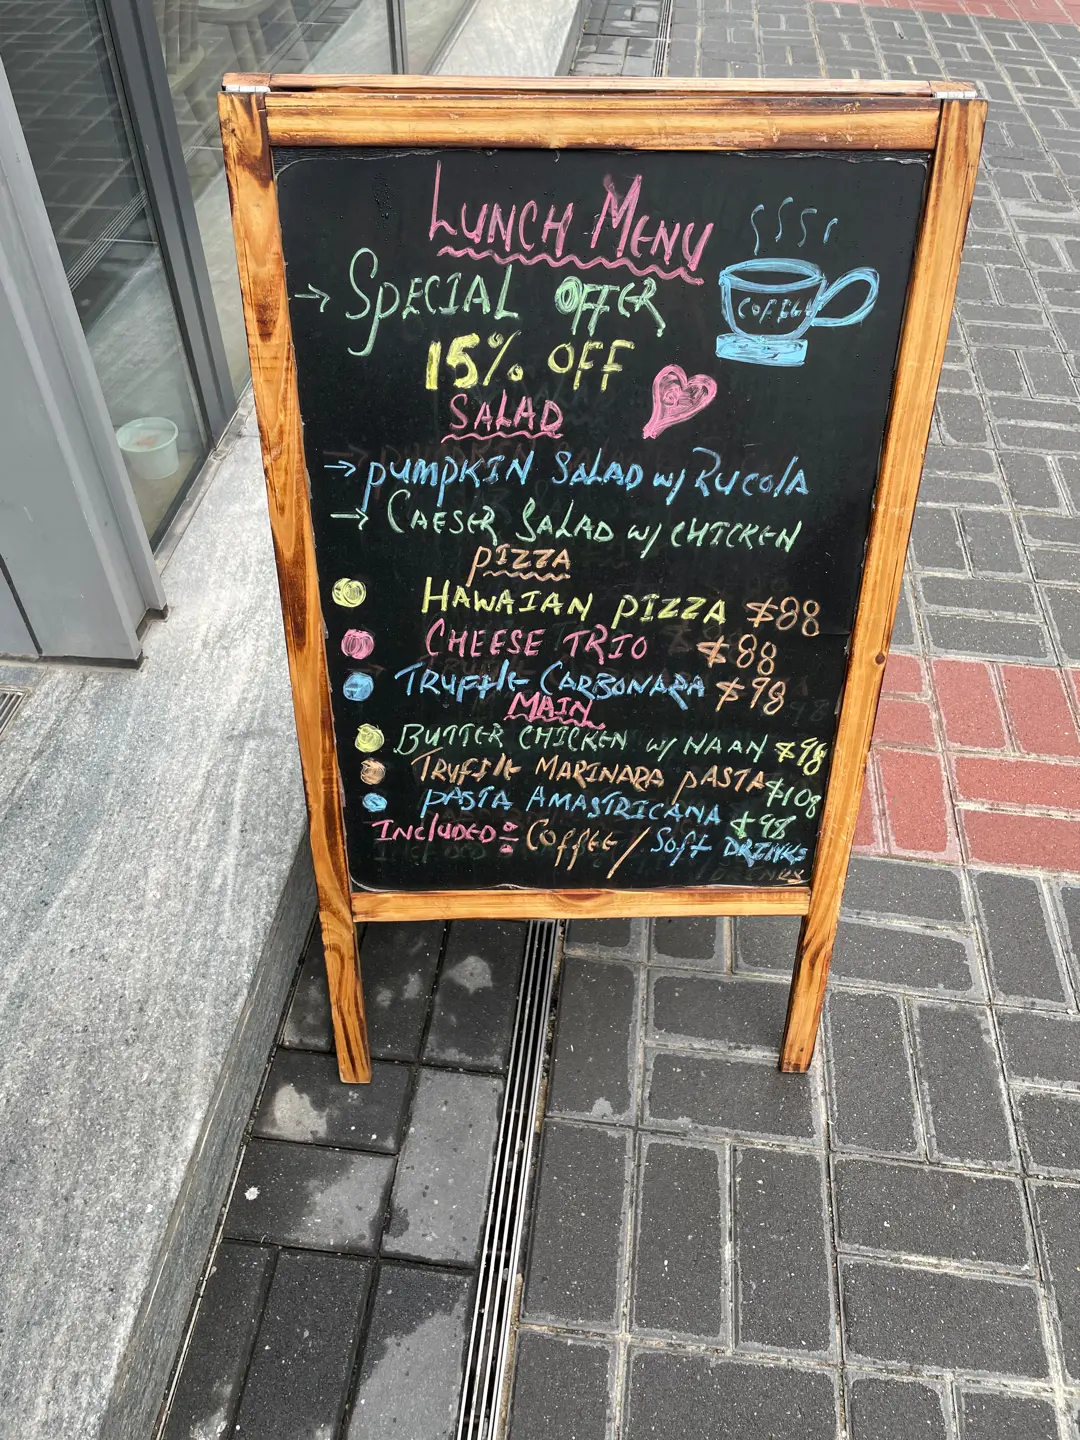 LUNCH MENU
→ SPECIAL OFFER
COFFEE
15% OFF
SALAD
→ PUMPKIN SALAD W/ RUCOLA
→ CAESER SALAD W/ CHICKEN
PIZZA
HAWAIAN PIZZA $88
CHEESE TRIO $88
TRUFFLE CARBONARA $98
MAIN
BUTTER CHICKEN W/ NAAN $98
TRUFFLE MARINARA PASTA $108
PASTA AMASTRICANA $98
INCLUDED: COFFEE / SOFT DRINKS